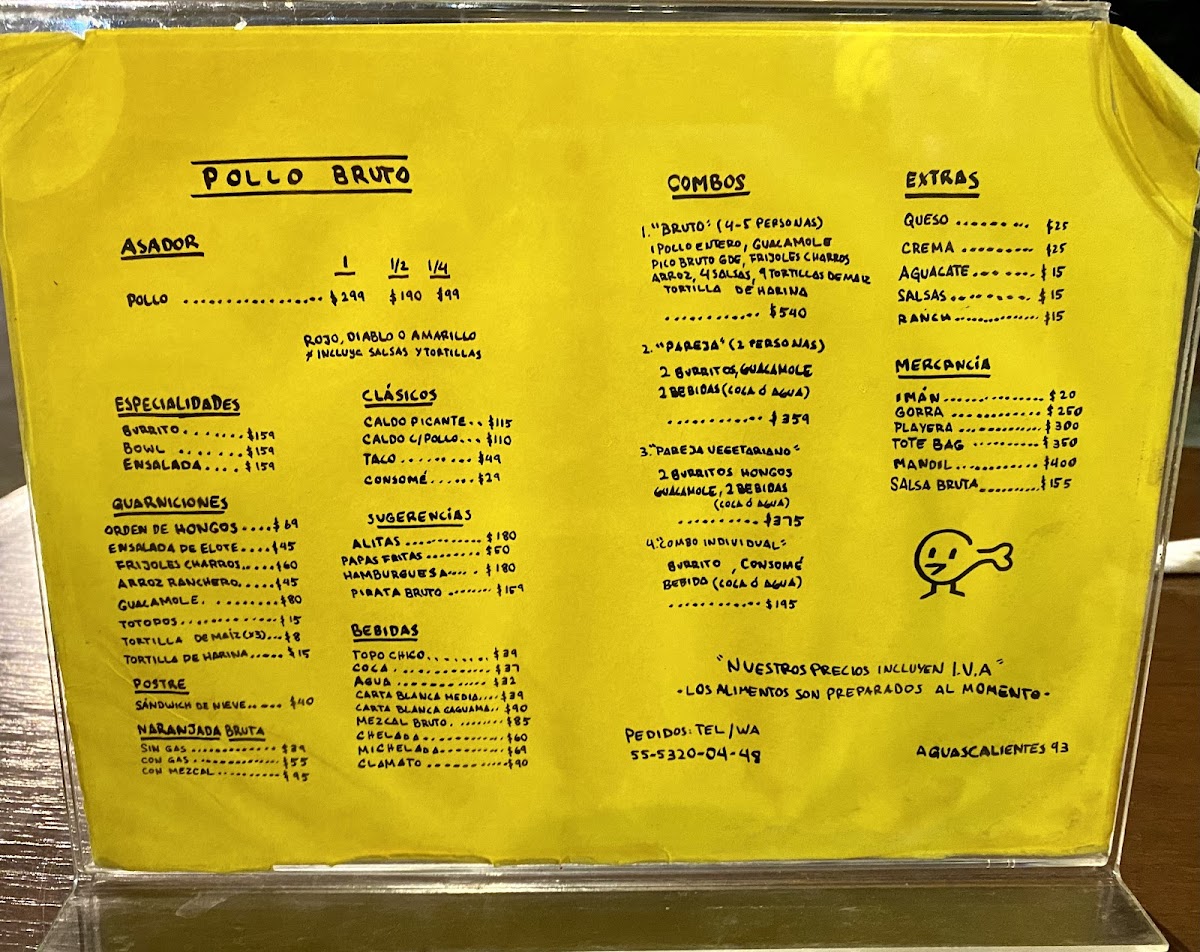 POLLO BRUTO
ASADOR
1 1/2 1/4
POLLO ................. $299 $190 $99
ROJO, DIABLO O AMARILLO
* INCLUYE SALSAS Y TORTILLAS
ESPECIALIDADES
BURRITO ....... $159
BOWL ....... $159
ENSALADA .... $159
GUARNICIONES
ORDEN DE HONGOS .... $69
ENSALADA DE ELOTE .... $45
FRIJOLES CHARROS ..... $60
ARROZ RANCHERO ..... $45
GUACAMOLE ......... $80
TOTOPOS ............ $15
TORTILLA DE MAÍZ (x3) ... $8
TORTILLA DE HARINA ..... $15
POSTRE
SÁNDWICH DE NIEVE ..... $40
NARANJADA BRUTA
SIN GAS ............ $39
CON GAS ............ $55
CON MEZCAL .......... $95
CLÁSICOS
CALDO PICANTE .. $115
CALDO C/POLLO ... $110
TACO ......... $49
CONSOMÉ ...... $29
SUGERENCIAS
ALITAS ............ $180
PAPAS FRITAS ........ $60
HAMBURGUESA ..... $180
PIRATA BRUTO ....... $159
BEBIDAS
TOPO CHICO ........ $39
COCA ............ $37
AGUA ............ $32
CARTA BLANCA MEDIA ... $39
CARTA BLANCA CAGUAMA .. $90
MEZCAL BRUTO ........ $85
CHELADA .......... $60
MICHELADA .......... $69
CLAMATO ............ $90
COMBOS
1. "BRUTO" (4-5 PERSONAS)
1 POLLO ENTERO, GUACAMOLE
PICO BRUTO GDE, FRIJOLES CHARROS
ARROZ, 4 SALSAS, 9 TORTILLAS DE MAIZ
TORTILLA DE HARINA
............ $540
2. "PAREJA" (2 PERSONAS)
2 BURRITOS, GUACAMOLE
2 BEBIDAS (COCA Ó AGUA)
............ $359
3. "PAREJA VEGETARIANO"
2 BURRITOS HONGOS
GUACAMOLE, 2 BEBIDAS
(COCA Ó AGUA)
.......... $375
4. "COMBO INDIVIDUAL"
BURRITO, CONSOMÉ
BEBIDA (COCA Ó AGUA)
............ $195
EXTRAS
QUESO .......... $25
CREMA ......... $25
AGUACATE ........ $15
SALSAS ......... $15
RANCH ............ $15
MERCANCÍA
IMÁN .............. $20
GORRA ............. $250
PLAYERA ............ $300
TOTE BAG .......... $350
MANDIL ............ $400
SALSA BRUTA ......... $155
"NUESTROS PRECIOS INCLUYEN I.V.A"
-LOS ALIMENTOS SON PREPARADOS AL MOMENTO-
PEDIDOS: TEL/WA
55-5320-04-48
AGUASCALIENTES 93